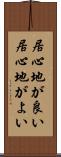 居心地が良い
居心地がよい